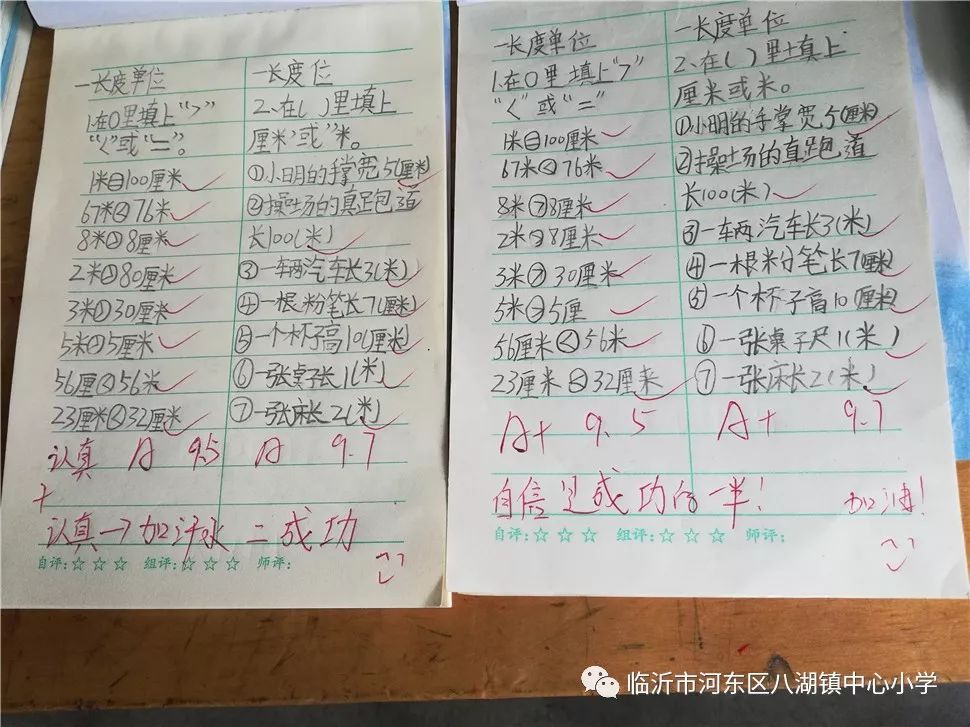 一长度单位
1.在○里填上“>”
“<”或“=”。
1米=100厘米
67米<76米
8米>8厘米
2米>80厘米
3米>30厘米
5米>5厘米
56厘<56米
23厘米<32厘米
一长度位
2.在( )里填上
厘米’或”米。
①小明的手掌宽5(厘米)
②操场的真跑道
长100(米)
③一车两汽车长3(米)
④一根粉笔长7(厘米)
⑤一个杯子高10(厘米)
⑥一张桌子长1(米)
⑦一张床长2(米)
认真 A 9.5 A 9.7
+
认真→加汗水=成功
自评:☆☆☆ 组评:☆☆☆ 师评:
一长度单位
1.在○里填上“>”
“<”或“=”
1米=100厘米
67米<76米
8米>8厘米
2米>8厘米
3米>30厘米
5米>5厘
56厘米<56米
23厘米<32厘米
一长度单位
2.在( )里填上
厘米或米。
①小明的手掌宽5(厘米)
②操场的直跑道
长100(米)
③一车两汽车长3(米)
④一根粉笔长7(厘米)
⑤一个杯子高10(厘米)
⑥一张桌子尺1(米)
⑦一张床长2(米)
A+ 9.5 A+ 9.7
自信是成功的一半! 加油!
自评:☆☆☆ 组评:☆☆☆ 师评:
临沂市河东区八湖镇中心小学